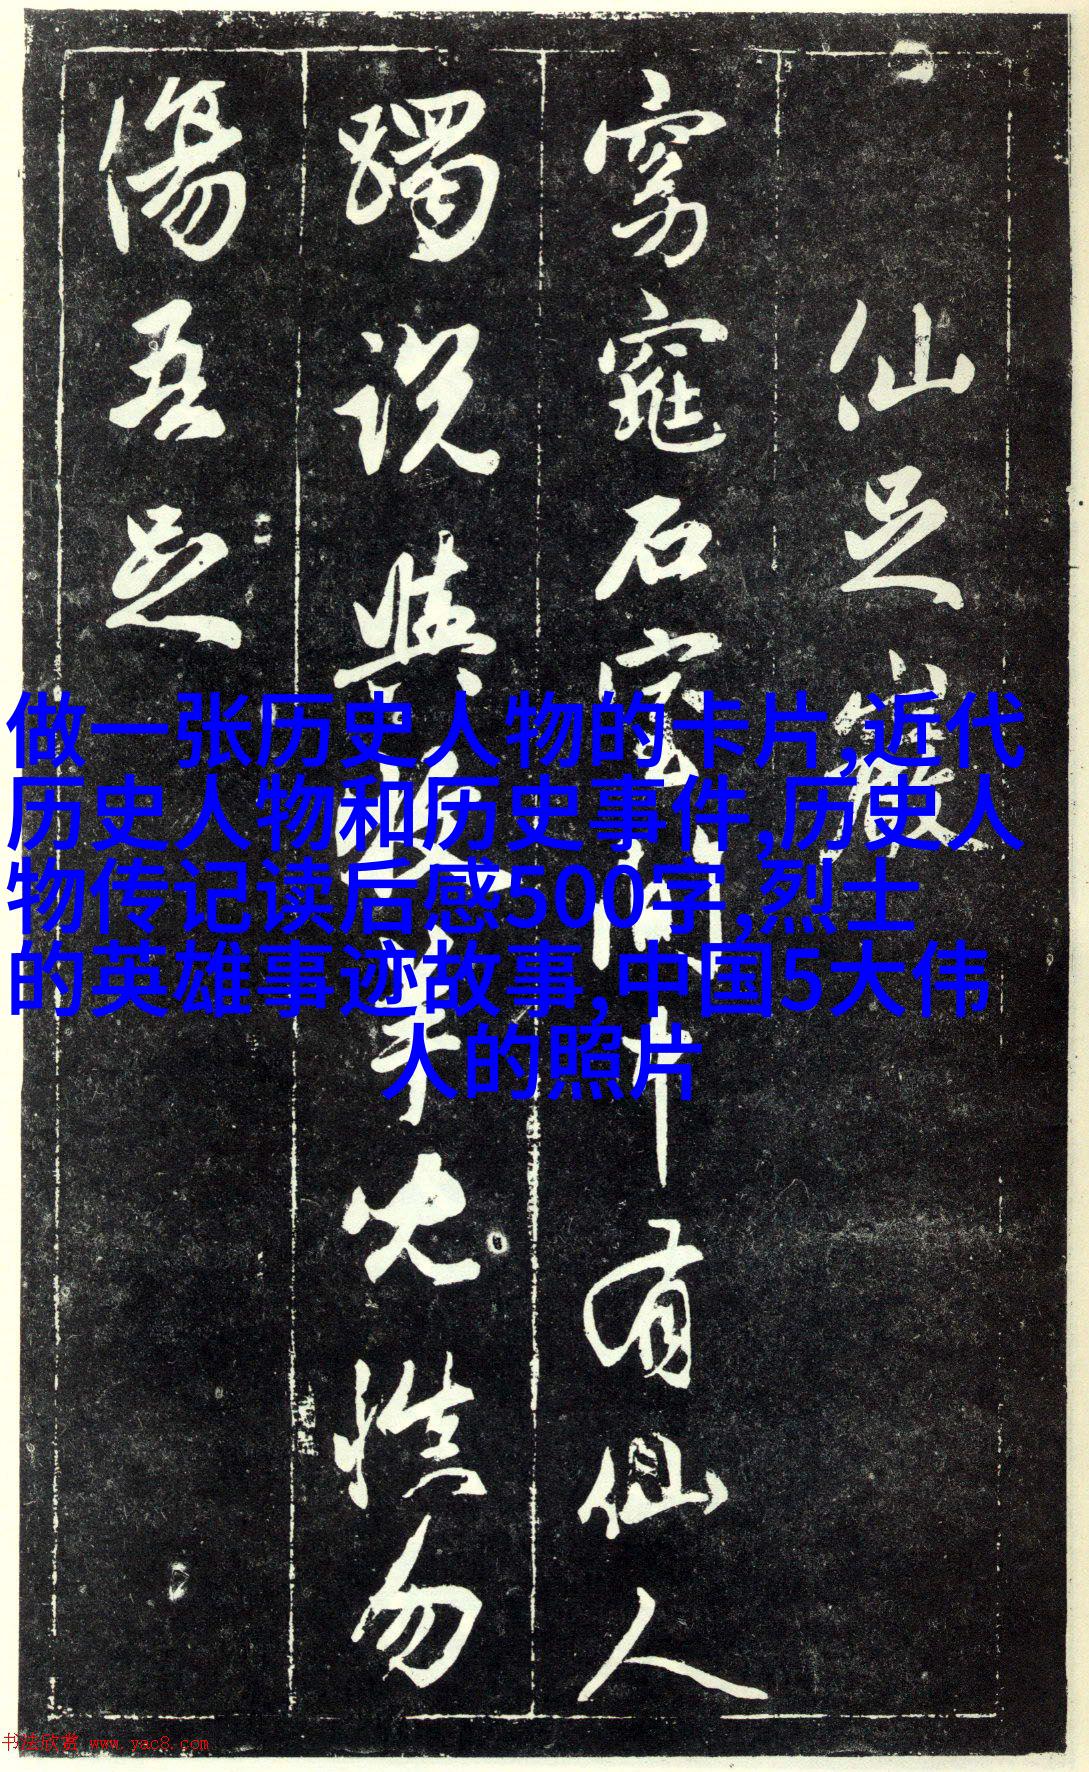 仙足巖
窈窕石室間中有仙人
躅説與牧羊兒慎勿
傷吾足
做一张历史人物的卡片,近代
历史人物和历史事件,历史人
物传记读后感500字,烈士
的英雄事迹故事,中国5大伟
人的照片
书法欣赏 www.yac8.com